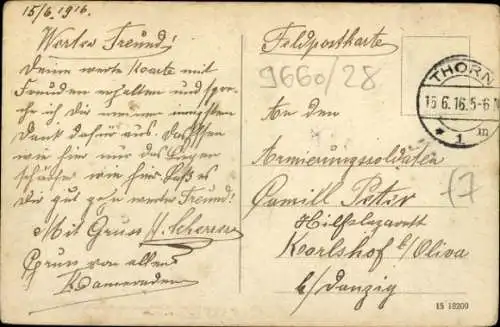 15/6. 1916.
Werter Freund!
Deine werte Karte mit
Freuden erhalten und spre-
che ich Dir meinen innigsten
Dank dafür aus. Das Essen
wie hier nur das Gegen
wie hier Laß es
Dir gut gehn werter Freund!
Mit Gruss H. Scherer
Gruss von allen
Kameraden
Feldpostkarte
9660/28
THORN
15.6.16.5-6 N
* 1 m
An den
Armierungssoldaten
Camill Peter
Hilfslazarett
Karlshof b/Oliva
b/Danzig
17
15 18200